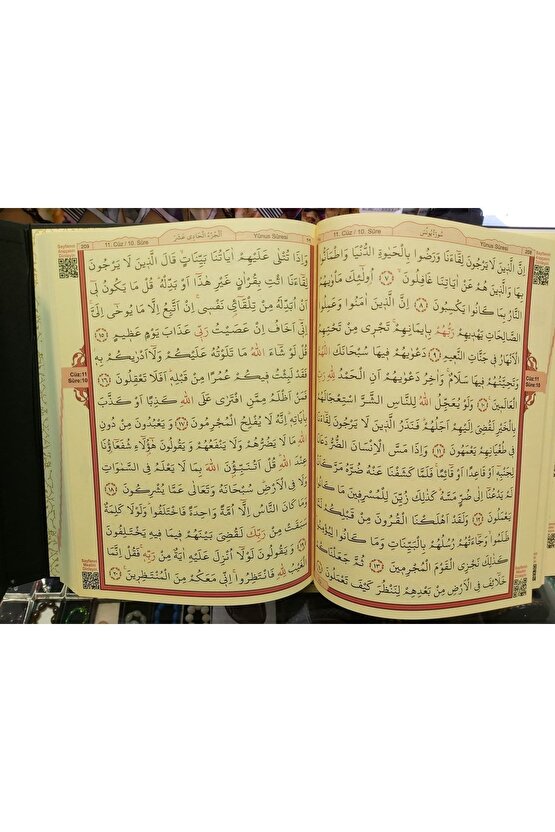 208
سُورَةُ يُونُسَ
Yûnus Sûresi
11. Cüz / 10. Sûre
اِنَّ الَّذِينَ لَا يَرْجُونَ لِقَاءَنَا وَرَضُوا بِالْحَيٰوةِ الدُّنْيَا وَاطْمَاَنُّوا
بِهَا وَالَّذِينَ هُمْ عَنْ اٰيَاتِنَا غَافِلُونَ ﴿٧﴾ اُولٰئِكَ مَاْوٰيهُمُ
النَّارُ بِمَا كَانُوا يَكْسِبُونَ ﴿٨﴾ اِنَّ الَّذِينَ اٰمَنُوا وَعَمِلُوا
الصَّالِحَاتِ يَهْدِيهِمْ رَبُّهُمْ بِاِيمَانِهِمْ تَجْرِي مِنْ تَحْتِهِمُ
الْاَنْهَارُ فِي جَنَّاتِ النَّعِيمِ ﴿٩﴾ دَعْوٰيهُمْ فِيهَا سُبْحَانَكَ اللّٰهُمَّ
وَتَحِيَّتُهُمْ فِيهَا سَلَامٌ وَاٰخِرُ دَعْوٰيهُمْ اَنِ الْحَمْدُ لِلّٰهِ رَبِّ
الْعَالَمِينَ ﴿١٠﴾ وَلَوْ يُعَجِّلُ اللّٰهُ لِلنَّاسِ الشَّرَّ اسْتِعْجَالَهُمْ
بِالْخَيْرِ لَقُضِيَ اِلَيْهِمْ اَجَلُهُمْ فَنَذَرُ الَّذِينَ لَا يَرْجُونَ لِقَاءَنَا
فِي طُغْيَانِهِمْ يَعْمَهُونَ ﴿١١﴾ وَاِذَا مَسَّ الْاِنْسَانَ الضُّرُّ دَعَانَا
لِجَنْبِهِ اَوْ قَاعِدًا اَوْ قَائِمًا فَلَمَّا كَشَفْنَا عَنْهُ ضُرَّهُ مَرَّ كَاَنْ
لَمْ يَدْعُنَا اِلٰى ضُرٍّ مَسَّهُ كَذٰلِكَ زُيِّنَ لِلْمُسْرِفِينَ مَا كَانُوا
يَعْمَلُونَ ﴿١٢﴾ وَلَقَدْ اَهْلَكْنَا الْقُرُونَ مِنْ قَبْلِكُمْ لَمَّا
ظَلَمُوا وَجَاءَتْهُمْ رُسُلُهُمْ بِالْبَيِّنَاتِ وَمَا كَانُوا لِيُؤْمِنُوا
كَذٰلِكَ نَجْزِي الْقَوْمَ الْمُجْرِمِينَ ﴿١٣﴾ ثُمَّ جَعَلْنَاكُمْ
خَلَائِفَ فِي الْاَرْضِ مِنْ بَعْدِهِمْ لِنَنْظُرَ كَيْفَ تَعْمَلُونَ ﴿١٤﴾
Cüz:11
Sûre:10
Yûnus Sûresi
اَلْجُزْءُ الْحَادِي عَشَرَ
11. Cüz / 10. Sûre
209
وَاِذَا تُتْلٰى عَلَيْهِمْ اٰيَاتُنَا بَيِّنَاتٍ قَالَ الَّذِينَ لَا يَرْجُونَ
لِقَاءَنَا ائْتِ بِقُرْاٰنٍ غَيْرِ هٰذَا اَوْ بَدِّلْهُ قُلْ مَا يَكُونُ لِي
اَنْ اُبَدِّلَهُ مِنْ تِلْقَائِ نَفْسِي اِنْ اَتَّبِعُ اِلَّا مَا يُوحٰى اِلَيَّ
اِنِّي اَخَافُ اِنْ عَصَيْتُ رَبِّي عَذَابَ يَوْمٍ عَظِيمٍ ﴿١٥﴾
قُلْ لَوْ شَاءَ اللّٰهُ مَا تَلَوْتُهُ عَلَيْكُمْ وَلَا اَدْرٰيكُمْ بِهِ
فَقَدْ لَبِثْتُ فِيكُمْ عُمُرًا مِنْ قَبْلِهِ اَفَلَا تَعْقِلُونَ ﴿١٦﴾
فَمَنْ اَظْلَمُ مِمَّنِ افْتَرٰى عَلَى اللّٰهِ كَذِبًا اَوْ كَذَّبَ
بِاٰيَاتِهِ اِنَّهُ لَا يُفْلِحُ الْمُجْرِمُونَ ﴿١٧﴾ وَيَعْبُدُونَ مِنْ دُونِ
اللّٰهِ مَا لَا يَضُرُّهُمْ وَلَا يَنْفَعُهُمْ وَيَقُولُونَ هٰؤُلَاءِ شُفَعَاؤُنَا
عِنْدَ اللّٰهِ قُلْ اَتُنَبِّئُونَ اللّٰهَ بِمَا لَا يَعْلَمُ فِي السَّمٰوَاتِ
وَلَا فِي الْاَرْضِ سُبْحَانَهُ وَتَعَالٰى عَمَّا يُشْرِكُونَ ﴿١٨﴾
وَمَا كَانَ النَّاسُ اِلَّا اُمَّةً وَاحِدَةً فَاخْتَلَفُوا وَلَوْلَا كَلِمَةٌ
سَبَقَتْ مِنْ رَبِّكَ لَقُضِيَ بَيْنَهُمْ فِيمَا فِيهِ يَخْتَلِفُونَ
﴿١٩﴾ وَيَقُولُونَ لَوْلَا اُنْزِلَ عَلَيْهِ اٰيَةٌ مِنْ رَبِّهِ فَقُلْ اِنَّمَا
الْغَيْبُ لِلّٰهِ فَانْتَظِرُوا اِنِّي مَعَكُمْ مِنَ الْمُنْتَظِرِينَ ﴿٢٠﴾
Cüz:11
Sûre:10